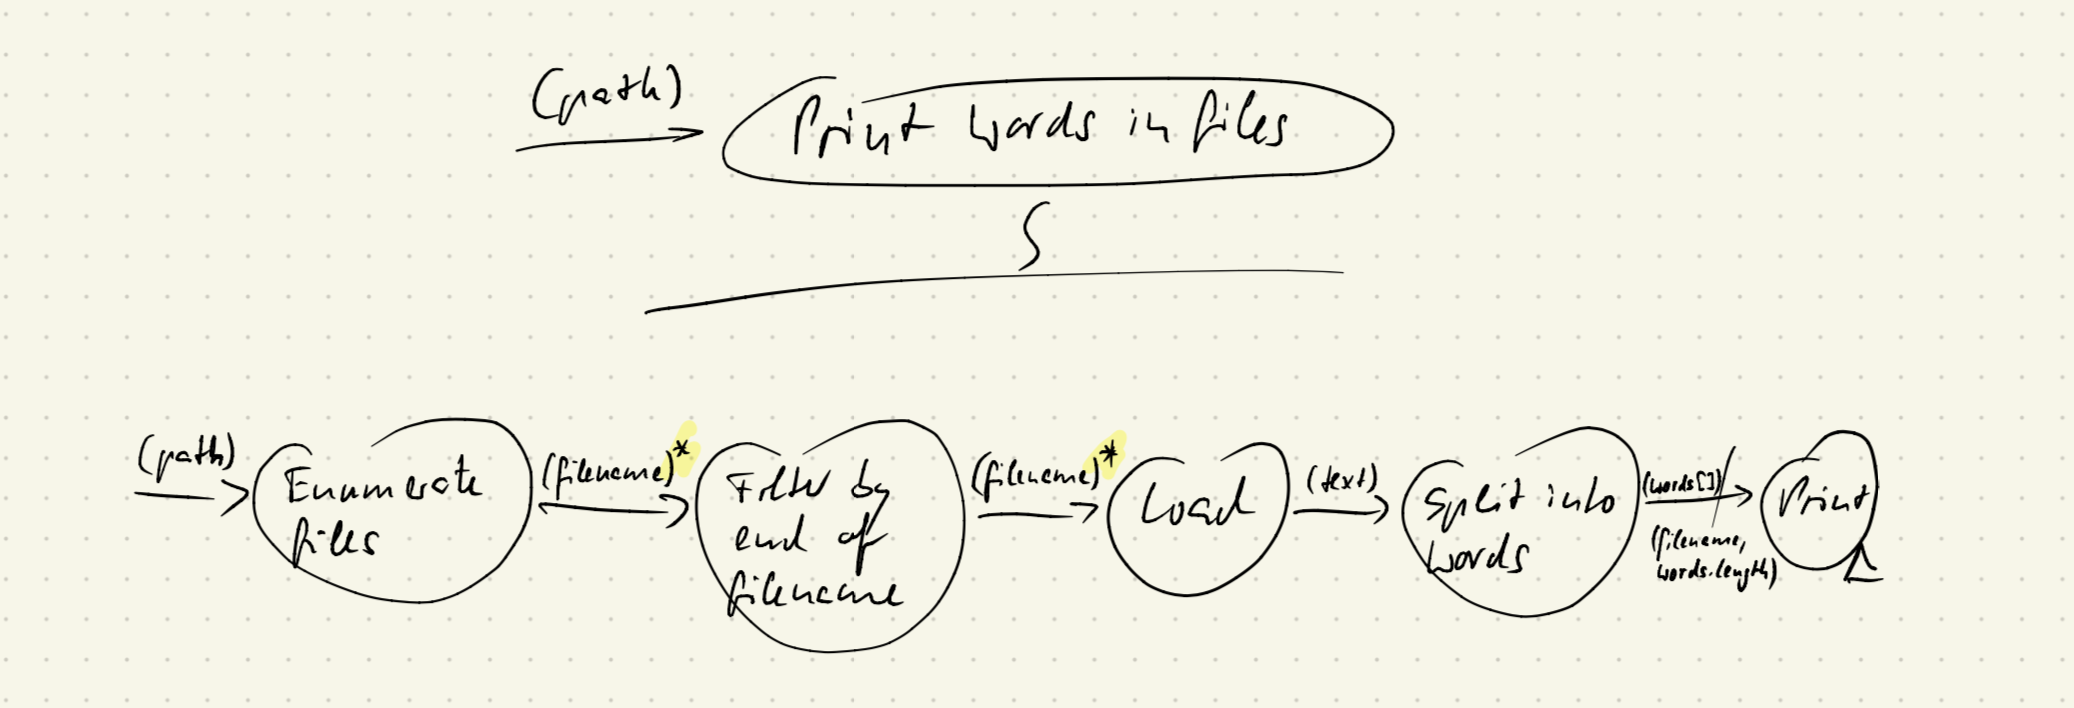 (path)
Print words in files
(path)
Enumerate
files
(filename)*
Filter by
end of
filename
(filename)*
Load
(text)
Split into
words
(words[])
(filename,
words.length)
Print